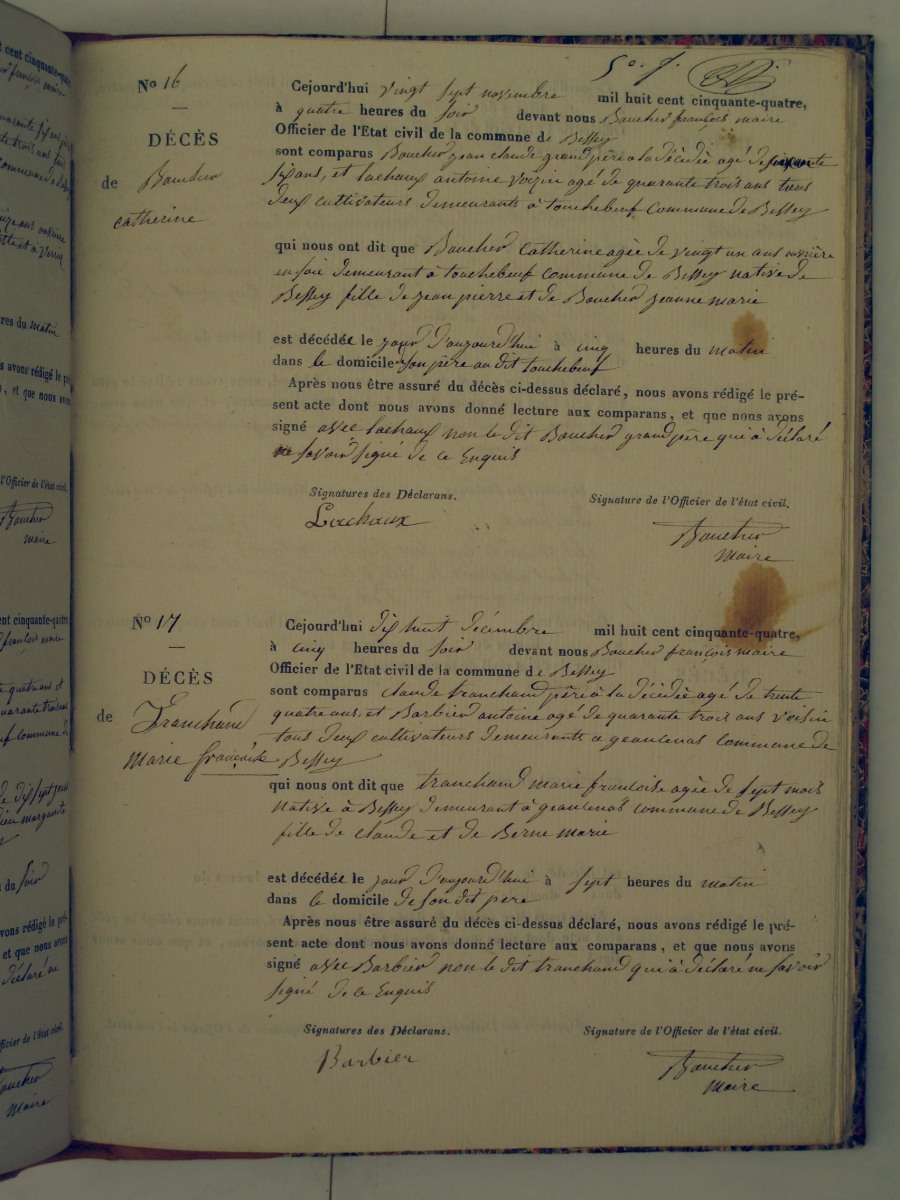 5e. f.
No 16
DÉCÈS
de Boucher
catherine
Cejourd'hui vingt sept novembre mil huit cent cinquante-quatre,
à quatre heures du soir devant nous Boucher françois maire
Officier de l'Etat civil de la commune de Bessey
sont comparus Boucher jean claude grand père a la décédée agé de soixante
six ans, et Lachaux antoine voisin agé de quarante trois ans tous
deux cultivateurs demeurants à touchebeuf Commune de Bessey
qui nous ont dit que Boucher Catherine agée de vingt un ans ouvrière
en soie demeurant à touchebeuf commune de Bessey native de
Bessey fille de jean pierre et de Boucher jeanne marie
est décédée le jour d'aujourd'hui à cinq heures du matin
dans le domicile de son père au dit touchebeuf
Après nous être assuré du décès ci-dessus déclaré, nous avons rédigé le pré-
sent acte dont nous avons donné lecture aux comparans, et que nous avons
signé avec Lachaux non le dit Boucher grand père qui à déclaré
ne savoir signé de ce Enquis
Signatures des Déclarans. Signature de l'Officier de l'état civil.
Lachaux Boucher
maire
No 17
DÉCÈS
de Tranchand
marie françoise
Cejourd'hui dix huit décembre mil huit cent cinquante-quatre,
à cinq heures du soir devant nous Boucher françois maire
Officier de l'Etat civil de la commune de Bessey
sont comparus claude tranchand père à la décédée agé de trente
quatre ans, et Barbier antoine agé de quarante trois ans voisin
tous deux cultivateurs demeurants a geaulenas commune de
Bessey
qui nous ont dit que tranchand marie francoise agée de sept mois
native à Bessey demeurant à geaulenas commune de Bessey
fille de claude et de Berne marie
est décédée le jour d'aujourd'hui à sept heures du matin
dans le domicile de son dit pere
Après nous être assuré du décès ci-dessus déclaré, nous avons rédigé le pré-
sent acte dont nous avons donné lecture aux comparans, et que nous avons
signé avec Barbier non le dit tranchand qui à déclaré ne savoir
signé de ce Enquis
Signatures des Déclarans. Signature de l'Officier de l'état civil.
Barbier Boucher
maire